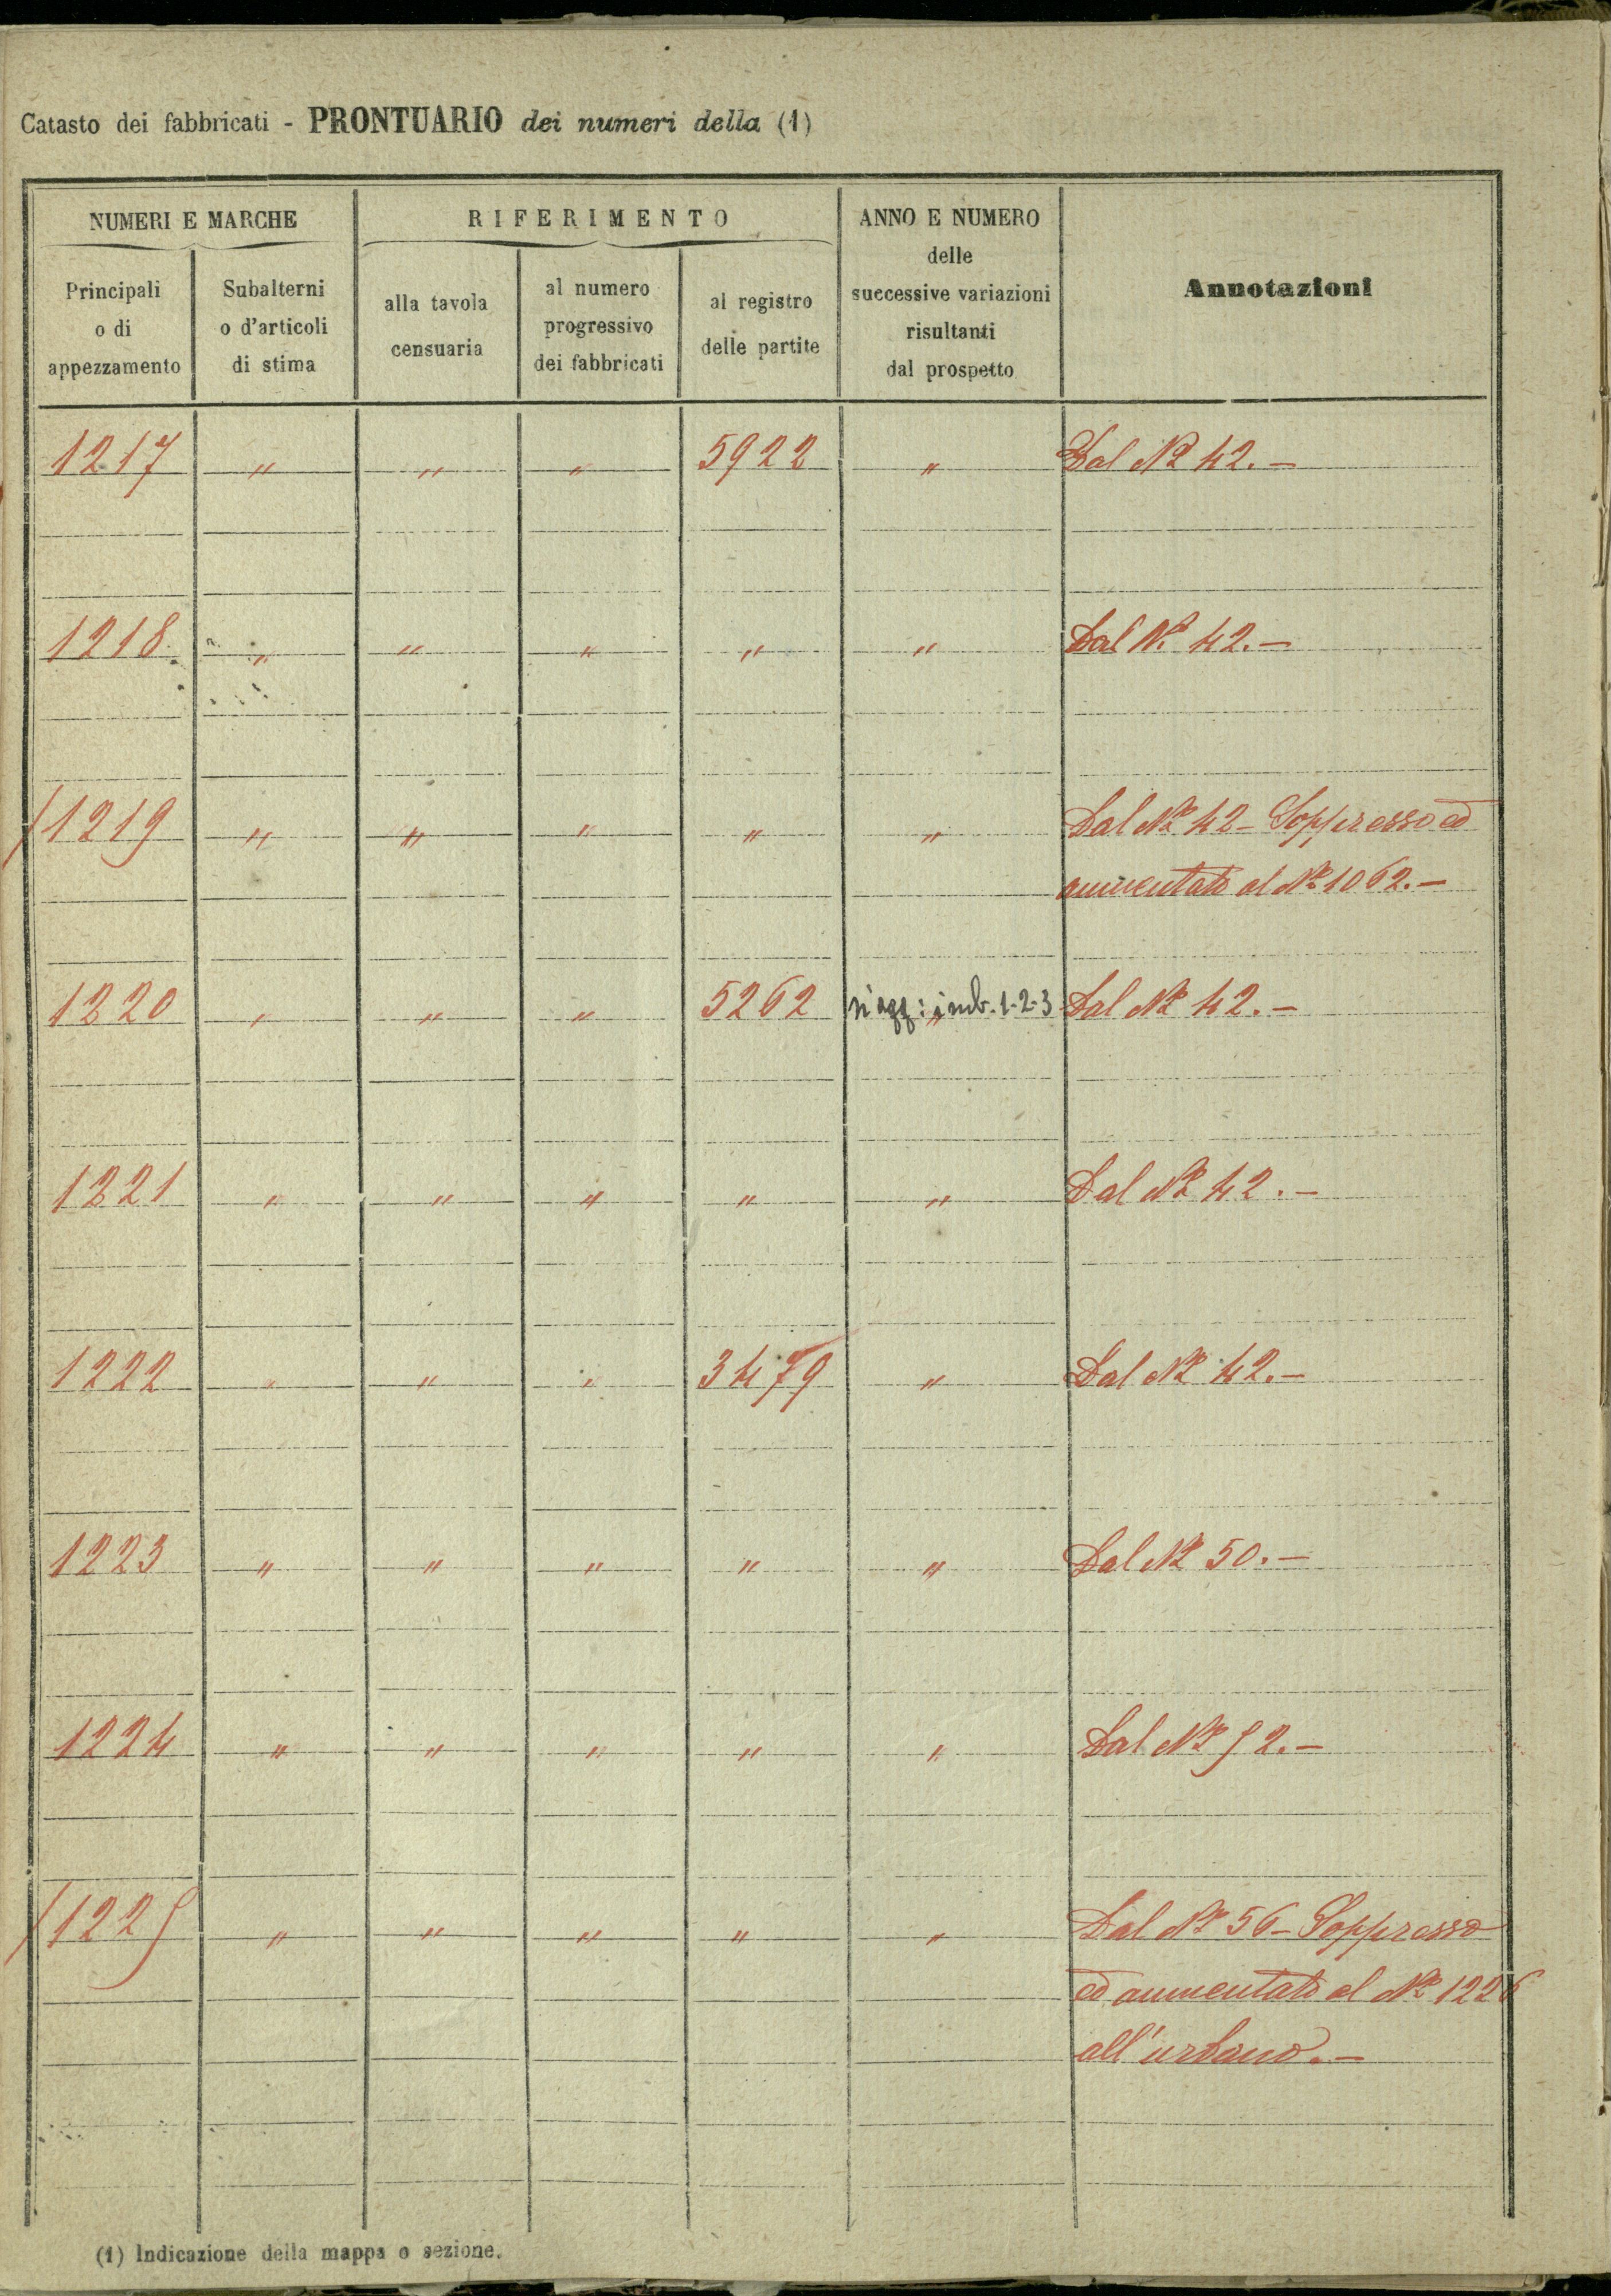 Catasto dei fabbricati - PRONTUARIO dei numeri della (1)
NUMERI E MARCHE
RIFERIMENTO
ANNO E NUMERO
delle
successive variazioni
risultanti
dal prospetto
Annotazioni
Principali
o di
appezzamento
Subalterni
o d'articoli
di stima
alla tavola
censuaria
al numero
progressivo
dei fabbricati
al registro
delle partite
1217 " " " 5922 " Dal No 42.-
1218 " " " " " Dal No 42.-
1219 " " " " " Dal No 42 - Soppresso ed
aumentato al No 1062.-
1220 " " " 5262 " 1-2-3 Dal No 42.-
1221 " " " " " Dal No 42.-
1222 " " " 3479 " Dal No 42.-
1223 " " " " " Dal No 50.-
1224 " " " " " Dal No 52.-
1225 " " " " " Dal No 56 - Soppresso
ed aumentato al No 1226
all'urbano.-
(1) Indicazione della mappa o sezione.